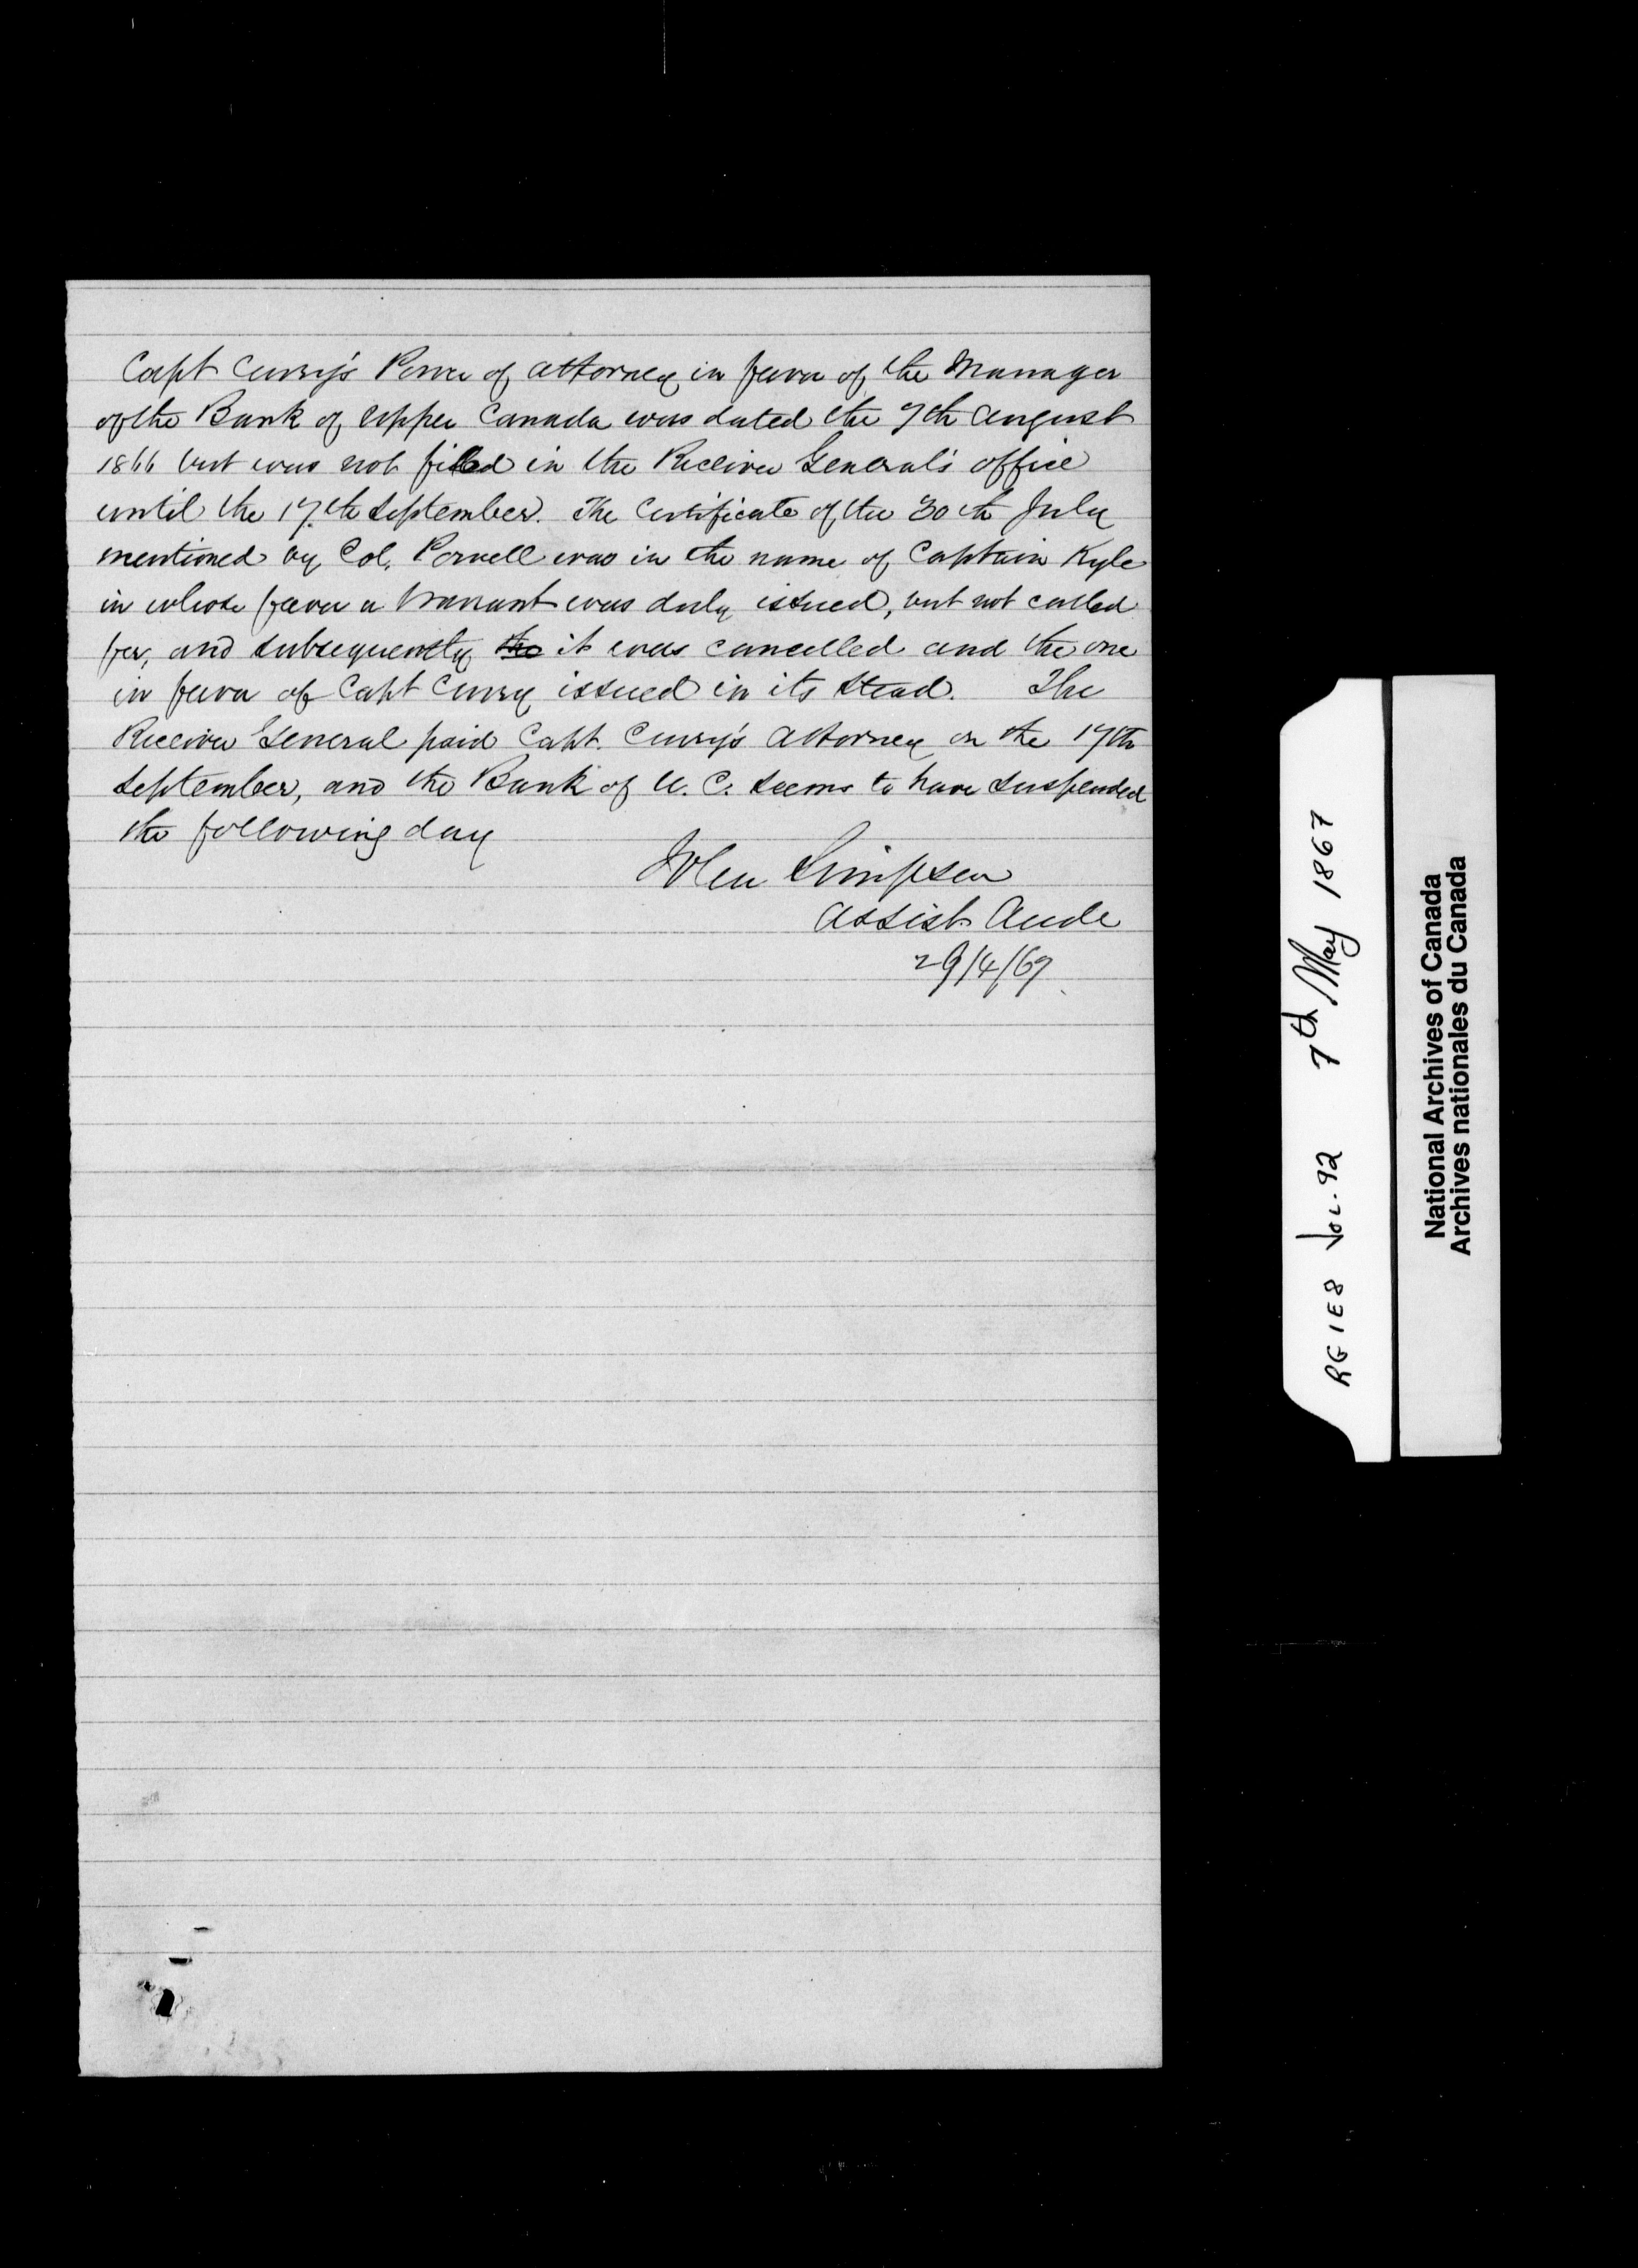 Capt Curry's Power of Attorney in favor of the Manager
of the Bank of Upper Canada was dated the 7th August
1866 but was not filed in the Receiver General's office
until the 17th September. The Certificate of the 30th July
mentioned by Col. Powell was in the name of Captain Kyle
in whose favor a Warrant was duly issued, but not called
for, and subsequently the it was cancelled and the one
in favor of Capt Curry issued in its stead. The
Receiver General paid Capt. Curry's Attorney on the 17th
September, and the Bank of U. C. seems to have suspended
the following day
John Simpson
Assist. Aud.
29/4/67
RG 1 E8 Vol. 92 7th May 1867
National Archives of Canada
Archives nationales du Canada